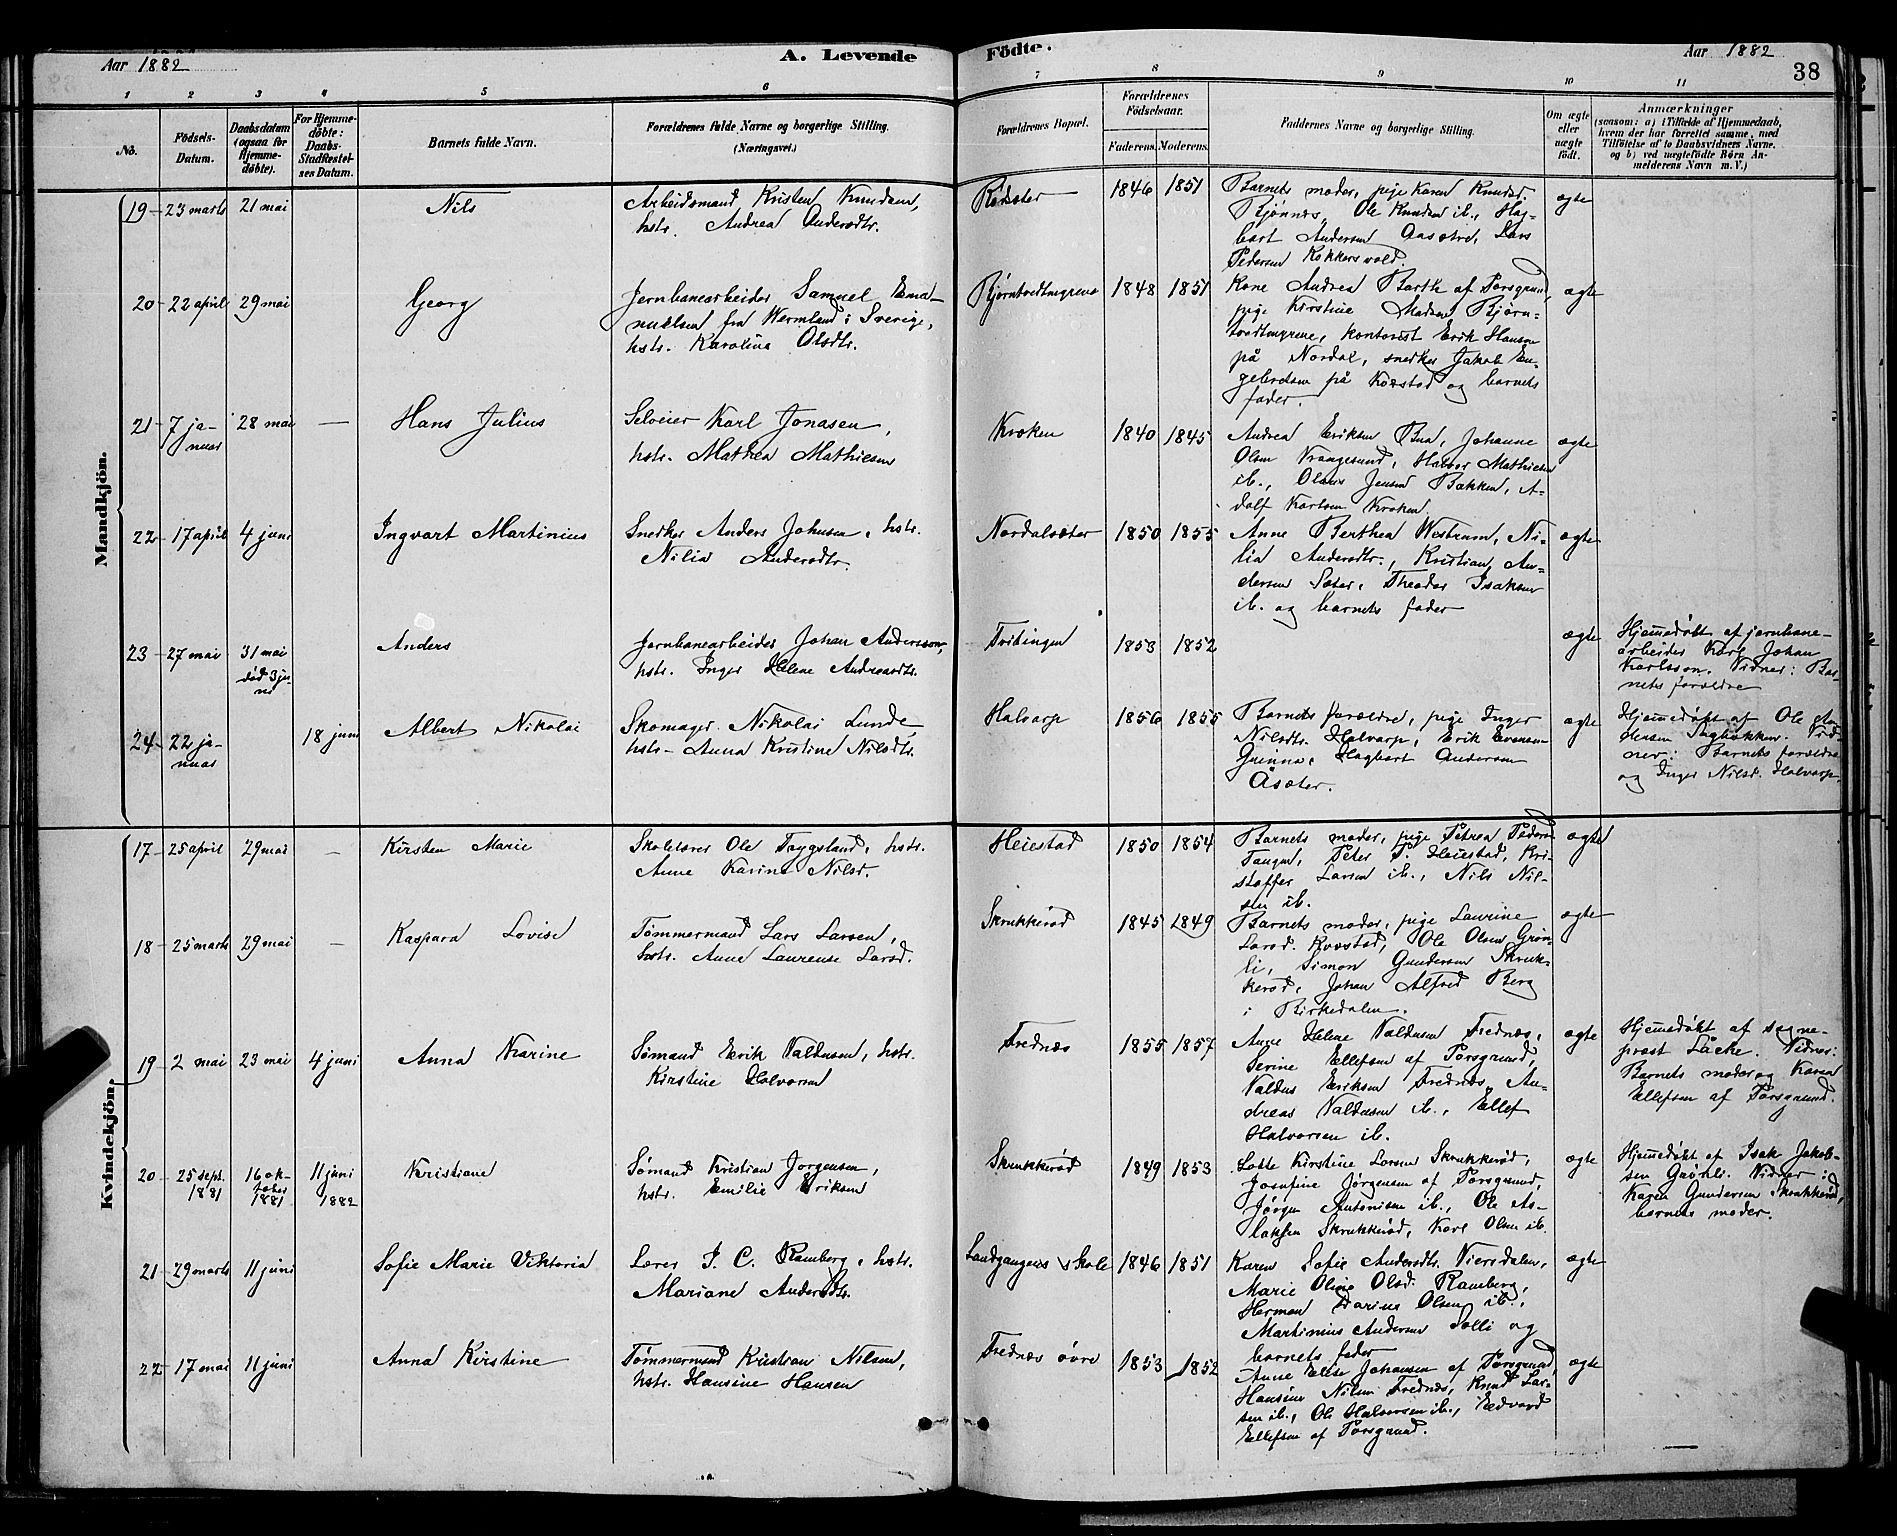 Aar 1882
A. Levende
Födte.
Aar 1882
38
1 2 3 4 5 6 7 8 9 10 11
No.
Födsels-
Datum.
Daabsdatum
(ogsaa for
Hjemme-
döbte).
For Hjemme-
döbte:
Daabs-
Stadfæstel-
ses Datum.
Barnets fulde Navn.
Forældrenes fulde Navne og borgerlige Stilling.
(Næringsvei.)
Forældrenes Bopæl.
Forældrenes
Födselsaar.
Faderens. Moderens.
Faddernes Navne og borgerlige Stilling.
Om ægte
eller
uægte
födt.
Anmærkninger
(saasom: a) i Tilfælde af Hjemmedaab,
hvem der har forrettet samme, med
Tilföielse af to Daabsvidners Navne.
og b) ved uægtefödte Börn An-
melderens Navn m. V.)
Mandkjön.
19 23 marts 21 mai
Nils
Arbeidsmand Kristen Knudsen,
hstr. Andrea Andersdtr.
1846 1851
Barnets moder, pige Karen Knudsd.
Bjønnes, Ole Knudsen ib., Hag-
bart Andersen Aasætre, Lars
Pedersen Kokkersvold.
ægte
20 22 april 29 mai
Georg
Jernbanearbeider Samuel Ema-
nuelsen fra Wermland i Sverige,
hstr. Karolina Olsdtr.
Bjørntvedtmyrene
1848 1851
Kone Andrea Barth af Porsgrund,
pige Kirstine Madsen Bjørn-
tvedtmyrene, kontorist Erik Hansen
på Nordal, snedker Jakob En-
gebretsen på Kværstad og barnets
fader.
ægte
21 7 ja-
nuar
28 mai
—
Hans Julius
Selveier Karl Jonasen,
hstr. Mathea Mathiesen
Kroken
1840 1845
Andrea Eriksen Bua, Johanne
Olsen Vrangesund, Halvor Mathiesen
ib., Olaus Jensen Bakken, A-
dolf Karlsen Kroken
ægte
22 17 april 4 juni
Ingvart Martinius
Snedker Anders Johnsen, hstr.
Nilia Andersdtr.
Nordalsæter
1850 1855
Anne Berthea Westrum, Ni-
lia Andersdtr., Kristian An-
dersen Sæter, Theodor Isaksen
ib. og barnets fader
ægte
23 27 mai 31 mai
død 3 ju-
ni
Anders
Jernbanearbeider Johan Andersson,
hstr. Inger Helene Andreasdtr.
1853 1852
ægte
Hjemmedøbt af jernbane-
arbeider Karl Johan
Karlsson. Vidner: Bar-
nets forældre
24 22 ja-
nuar
18 juni
Albert Nikolai
Skomager Nikolai Lunde
hstr. Anna Kristine Nilsdtr.
Halvarp
1856 1855
Barnets forældre, pige Inger
Nilsdtr. Halvarp, Erik Evensen
Grinna, Hagbart Andersen
Åsæter.
ægte
Hjemmedøbt af Ole An-
dersen Vid-
ner: Barnets forældre
og Inger Nilsd. Halvarp.
Kvindekjön.
17 25 april 29 mai
—
Kirsten Marie
Skolelærer Ole Trygsland, hstr.
Anne Karine Nilsd.
Heiestad
1850 1854
Barnets moder, pige Petrea Peders.
Tangen, Peter P. Heiestad, Kri-
stoffer Larsen ib., Nils Nil-
sen ib.
ægte
18 25 marts 29 mai
—
Kaspara Lovise
Tømmermand Lars Larsen,
hstr. Anne Laurense Larsd.
Skrukkerød
1845 1849
Barnets moder, pige Laurine
Larsd. Kværstad, Ole Olsen Grøn-
li, Simon Gundersen Skruk-
kerød, Johan Alfred Berg
i Birkedalen.
ægte
19 2 mai 23 mai 4 juni
Anna Karine
Sømand Erik Valdusen, hstr.
Kirstine Halvorsen
Frednæs
1855 1857
Anne Helene Valdusen Frednæs,
Serine Ellefsen af Porsgrund,
Valdus Eriksen Frednæs, An-
dreas Valdusen ib., Ellef
Halvorsen ib.
ægte
Hjemmedøbt af sogne-
præst Låche. Vidner:
Barnets moder og Karen
Ellefsen af Porsgrund.
20 25 sept.
1881
16 ok-
tober
1881
11 juni
1882
Kristiane
Sømand Kristian Jørgensen,
hstr. Emilie Eriksen
Skrukkerød
1849 1853
Lotte Kirstine Larsen Skrukkerød,
Josefine Jørgensen af Porsgrund,
Jørgen Antonisen ib., Ole As-
laksen Skrukkerød, Karl Olsen ib.
ægte
Hjemmedøbt af Isak Jakob-
sen Grønli. Vidner:
Karen Gundersen Skrukkerød,
barnets moder.
21 29 marts 11 juni
Sofie Marie Viktoria
Lærer I. C. Ramberg, hstr.
Mariane Andersdtr.
Landgangens skole
1846 1851
Karen Sofie Andersdtr. Viersdalen,
Marie Oline Olsd. Ramberg,
Herman Darius Olsen ib.,
Martinius Andersen Solli og
barnets fader
ægte
22 17 mai 11 juni
Anna Kirstine
Tømmermand Kristian Nilsen,
hstr. Hansine Hansen
Frednæs øvre
1853 1852
Anne Elise Johansen af Porsgrund,
Hansine Nilsen Frednæs, Knud Lar-
sen ib., Ole Halvorsen ib., Edvard
Ellefsen af Porsgrund.
ægte